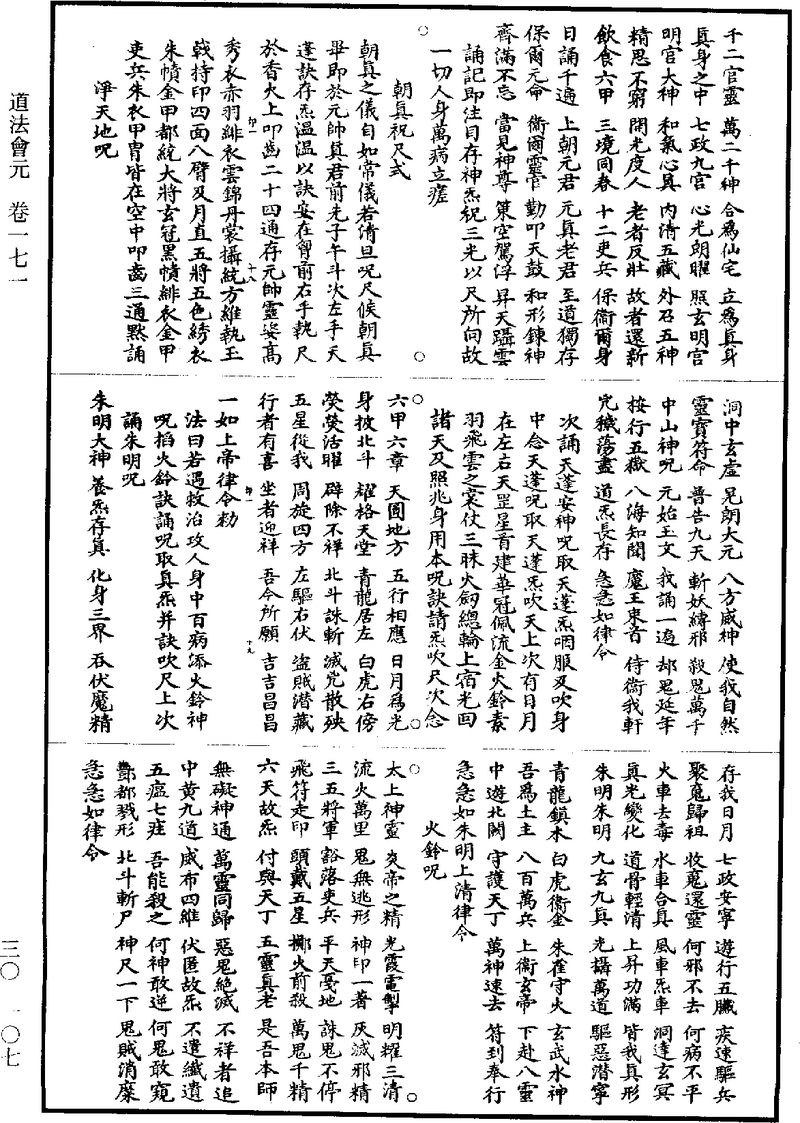 千二官靈　萬二千神　合為仙宅　立為真身
真身之中　七政九宮　心光朗曜　照玄明宮
明宮大神　和氣心具　內清五藏　外召五神
精思不窮　開光度人　老者反壯　故者還新
飲食六甲　三境同春　十二吏兵　保衛爾身
日誦千遍　上朝元君　元真老君　至道獨存
保爾元命　衛爾靈官　勤叩天鼓　和形鍊神
齊滿不忘　當見神尊　策空駕浮　昇天躡雲
誦記即注目存神炁祝三光以尺所向故
一切人身萬病立瘥
朝真祝尺式
朝真之儀自如常儀若清旦呪尺候朝真
畢即於元帥真君前先子午斗次左手天
蓬訣存炁溫溫以訣安在胷前右手執尺
於香火上叩齒二十四通存元帥靈姿高
秀衣赤羽緋衣雲錦丹裳攝統方維執玉
戟持印四面八臂及月直五將五色綉衣
朱幘金甲都統大將玄冠黑幘緋衣金甲
吏兵朱衣甲冑皆在空中叩齒三通默誦
淨天地呪
洞中玄虛　晃朗大元　八方威神　使我自然
靈寶符命　普告九天　斬妖縛邪　殺鬼萬千
中山神呪　元始玉文　我誦一遍　却鬼延年
按行五嶽　八海知聞　魔王束首　侍衛我軒
兇穢蕩盡　道炁長存　急急如律令
次誦天蓬安神呪取天蓬炁咽服及吹身
中念天蓬呪取天蓬炁吹天上次有日月
在左右天罡星首建華冠佩流金火鈴素
羽飛雲之裳仗三昧火劒總輪上宿光回
諸天及照兆身用本呪訣請炁吹尺次念
六甲六章　天圓地方　五行相應　日月為光
身披北斗　耀格天堂　青龍居左　白虎右傍
熒熒活曜　辟除不祥　北斗誅斬　滅兇散殃
五星從我　周旋四方　左驅右伏　盜賊潛藏
行者有喜　坐者迎祥　吾今所願　吉吉昌昌
一如上帝律令勑
法曰若遇救治攻人身中百病添火鈴神
呪掐火鈴訣誦呪取真炁并訣吹尺上次
誦朱明呪
朱明大神　養炁存真　化身三界　吞伏魔精
存我日月　七政安寧　遊行五臟　疾速驅兵
聚鬼歸祖　收魔還靈　何邪不去　何病不平
火車去毒　水車合真　風車炁車　洞達玄冥
真光變化　道骨輕清　上昇功滿　皆我真形
朱明朱明　九玄九真　光攝萬道　驅惡潛寧
青龍鎮木　白虎衛金　朱雀守火　玄武水神
吾為土主　八百萬兵　上衛玄帝　下赴八靈
中遊北闕　守護天丁　萬神速去　符到奉行
急急如朱明上清律令
火鈴呪
太上神靈　炎帝之精　光霞電掣　明耀三清
流火萬里　鬼無逃形　神印一著　灰滅邪精
三五將軍　豁落吏兵　平天憂地　誅鬼不停
飛符走印　頭戴五星　擲火前殺　萬鬼千精
六天故炁　付與天丁　五靈真老　是吾本師
無礙神通　萬靈同歸　惡鬼絕滅　不祥者追
中黃九道　威布四維　伏匿故炁　不遺纖遺
五瘟七疰　吾能殺之　何神敢逆　何鬼敢窺
酆都戮形　北斗斬尸　神尺一下　鬼賊消糜
急急如律令
道法會元　卷一七一
三〇 - 一〇七